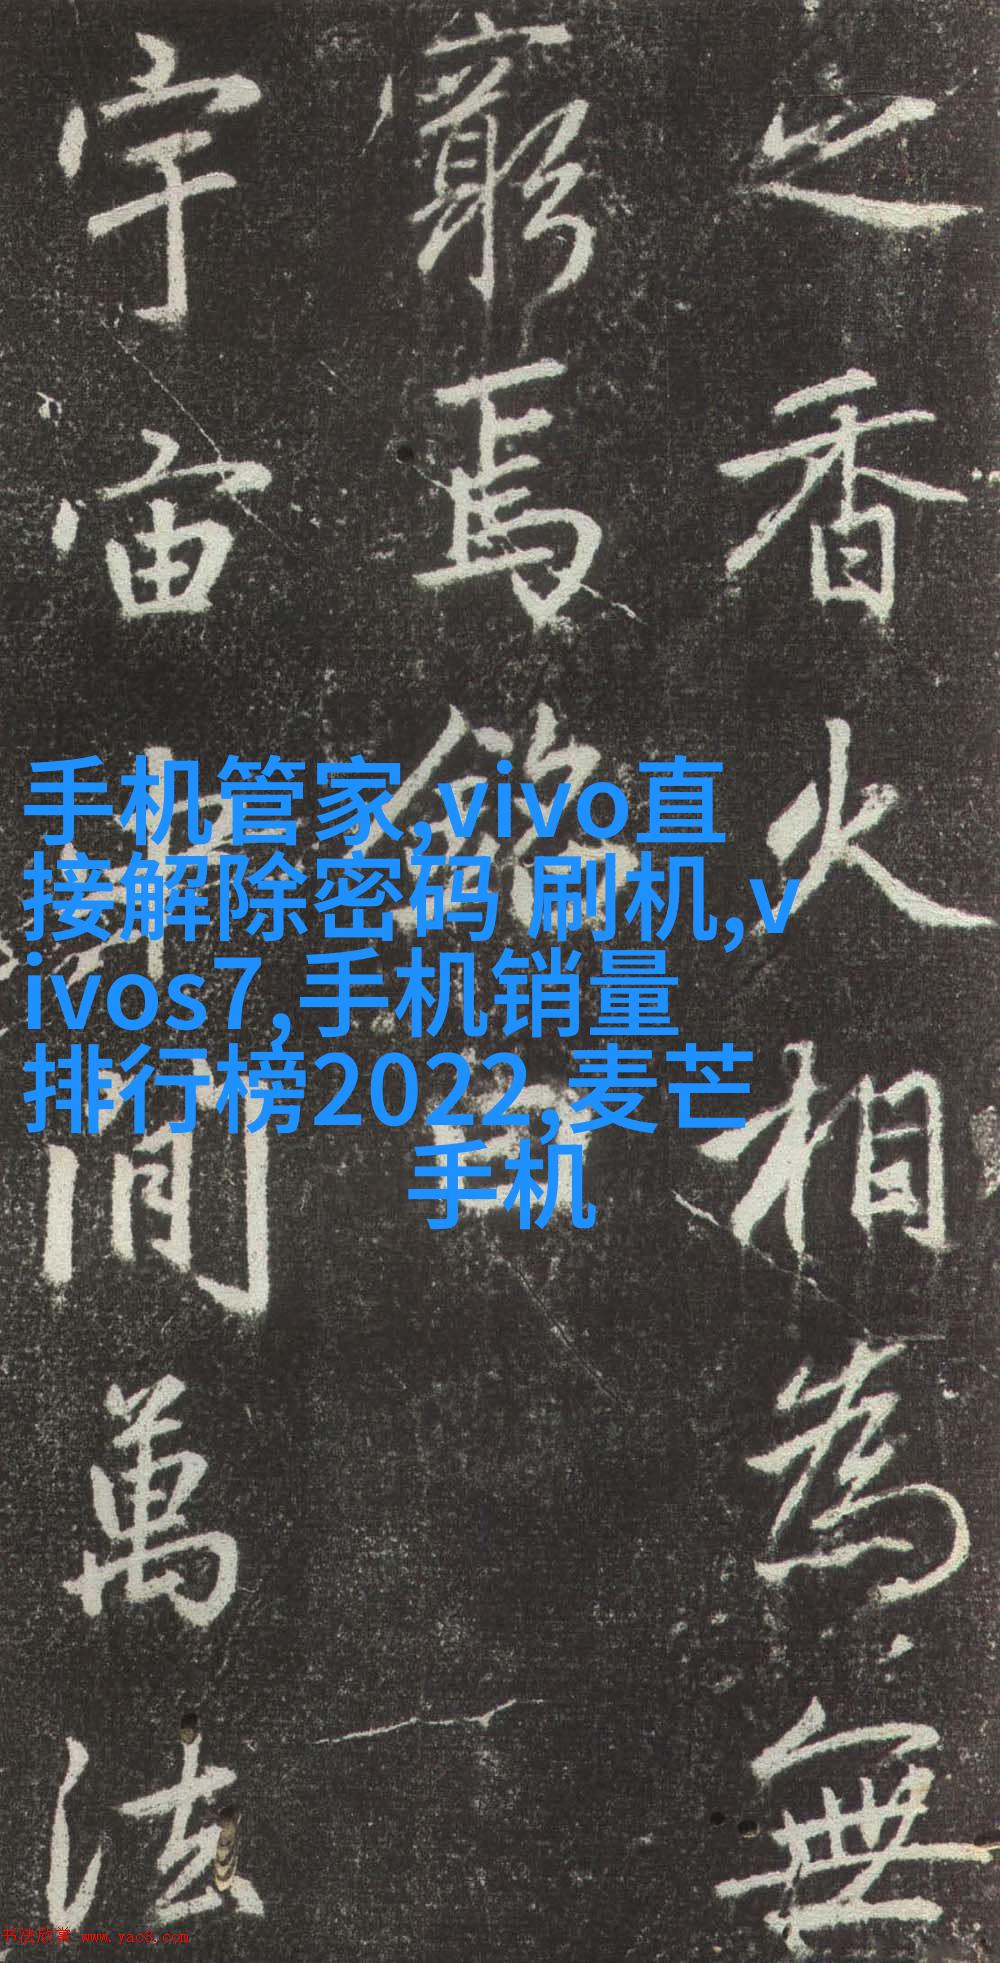 之香火相為無
窮焉銘曰
宇宙間萬法
手机管家,vivo直
接解除密码 刷机,v
ivos7,手机销量
排行榜2022,麦芒
手机
书法欣赏 www.yac8.com